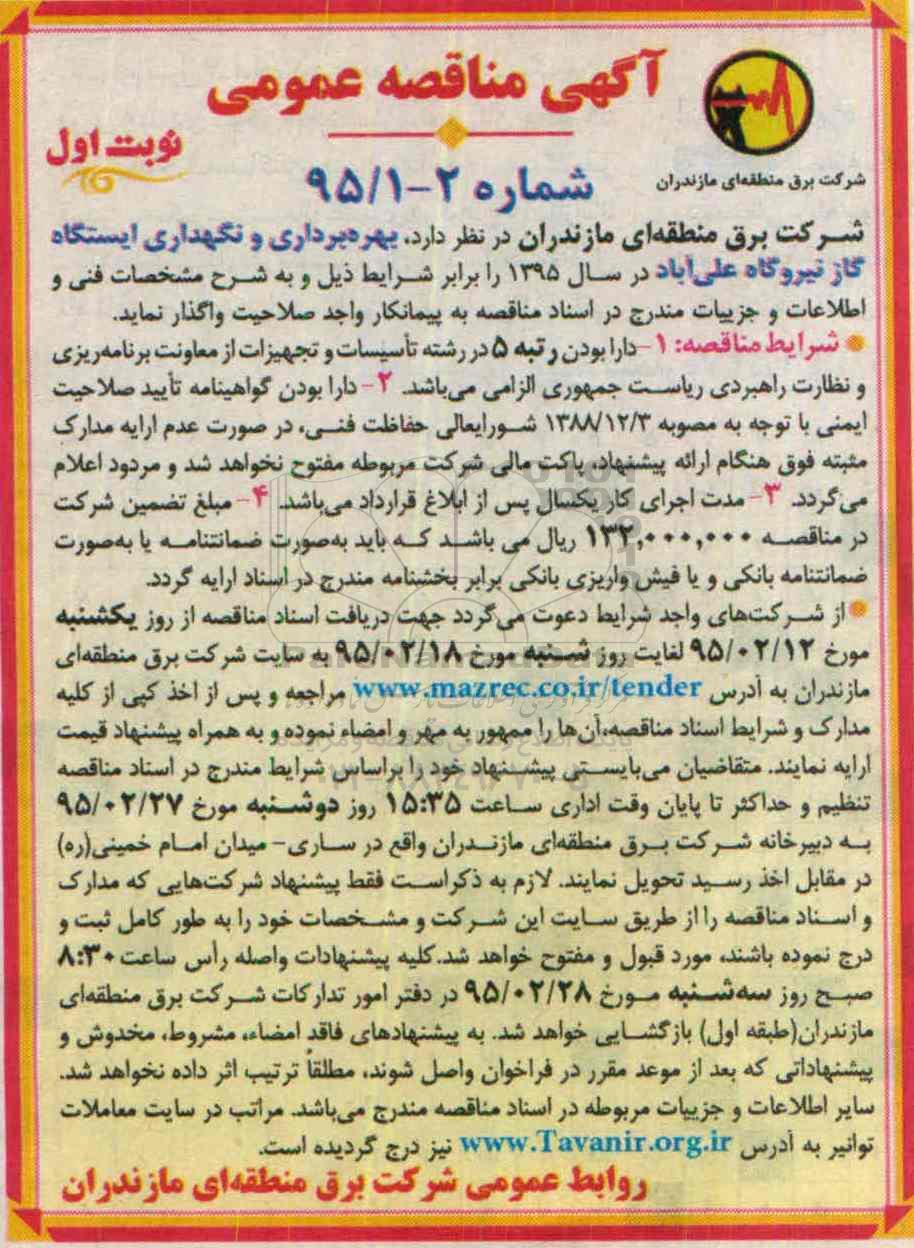 آگهی مناقصه عمومی
نوبت اول
شرکت برق منطقه‌ای مازندران
شماره ۲-۹۵/۱
شرکت برق منطقه‌ای مازندران در نظر دارد، بهره‌برداری و نگهداری ایستگاه
گاز نیروگاه علی‌آباد در سال ۱۳۹۵ را برابر شرایط ذیل و به شرح مشخصات فنی و
اطلاعات و جزییات مندرج در اسناد مناقصه به پیمانکار واجد صلاحیت واگذار نماید.
● شرایط مناقصه: ۱-دارا بودن رتبه ۵ در رشته تأسیسات و تجهیزات از معاونت برنامه‌ریزی
و نظارت راهبردی ریاست جمهوری الزامی می‌باشد. ۲- دارا بودن گواهینامه تأیید صلاحیت
ایمنی با توجه به مصوبه ۱۳۸۸/۱۲/۳ شورایعالی حفاظت فنی، در صورت عدم ارایه مدارک
مثبته فوق هنگام ارائه پیشنهاد، پاکت مالی شرکت مربوطه مفتوح نخواهد شد و مردود اعلام
می‌گردد. ۳- مدت اجرای کار یکسال پس از ابلاغ قرارداد می‌باشد. ۴- مبلغ تضمین شرکت
در مناقصه ۱۳۲,۰۰۰,۰۰۰ ریال می باشد که باید به‌صورت ضمانتنامه یا به‌صورت
ضمانتنامه بانکی و یا فیش واریزی بانکی برابر بخشنامه مندرج در اسناد ارایه گردد.
● از شرکت‌های واجد شرایط دعوت می‌گردد جهت دریافت اسناد مناقصه از روز یکشنبه
مورخ ۹۵/۰۲/۱۲ لغایت روز شنبه مورخ ۹۵/۰۲/۱۸ به سایت شرکت برق منطقه‌ای
مازندران به آدرس www.mazrec.co.ir/tender مراجعه و پس از اخذ کپی از کلیه
مدارک و شرایط اسناد مناقصه،آن‌ها را ممهور به مهر و امضاء نموده و به همراه پیشنهاد قیمت
ارایه نمایند. متقاضیان می‌بایستی پیشنهاد خود را براساس شرایط مندرج در اسناد مناقصه
تنظیم و حداکثر تا پایان وقت اداری ساعت ۱۵:۳۵ روز دوشنبه مورخ ۹۵/۰۲/۲۷
به دبیرخانه شرکت برق منطقه‌ای مازندران واقع در ساری- میدان امام خمینی(ره)
در مقابل اخذ رسید تحویل نمایند. لازم به ذکراست فقط پیشنهاد شرکت‌هایی که مدارک
و اسناد مناقصه را از طریق سایت این شرکت و مشخصات خود را به طور کامل ثبت و
درج نموده باشند، مورد قبول و مفتوح خواهد شد.کلیه پیشنهادات واصله رأس ساعت ۸:۳۰
صبح روز سه‌شنبه مورخ ۹۵/۰۲/۲۸ در دفتر امور تدارکات شرکت برق منطقه‌ای
مازندران(طبقه اول) بازگشایی خواهد شد. به پیشنهادهای فاقد امضاء، مشروط، مخدوش و
پیشنهاداتی که بعد از موعد مقرر در فراخوان واصل شوند، مطلقاً ترتیب اثر داده نخواهد شد.
سایر اطلاعات و جزییات مربوطه در اسناد مناقصه مندرج می‌باشد. مراتب در سایت معاملات
توانیر به آدرس www.Tavanir.org.ir نیز درج گردیده است.
روابط عمومی شرکت برق منطقه‌ای مازندران